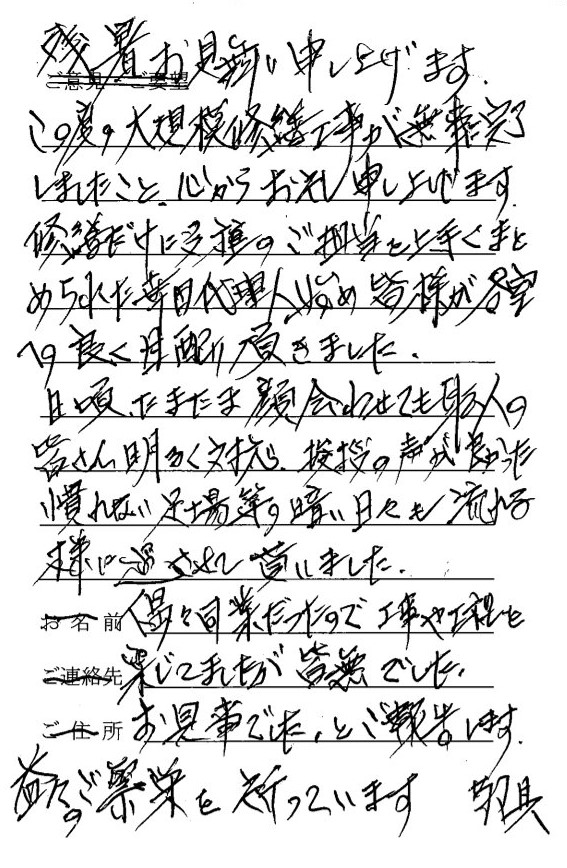 残暑お見舞い申し上げます。
ご意見・ご要望
この度の大規模修繕工事が無事完了
しましたこと、心からお礼申し上げます。
修繕だけに多種のご担当を上手くまと
められた 代理人始め皆様が各室
への良く目配り頂きました。
日頃、たまたま顔合わせても職人の
皆さん明るく対拶ら、挨拶の声が良かった
慣れない足場等の暗い日々も流れる
様に過させて貰いました。
お名前 偶々同業だったので工事や工程を
ご連絡先 案じてましたが皆無でした。
ご住所 お見事でした。とご報告します。
益々のご繁栄を祈っています 敬具